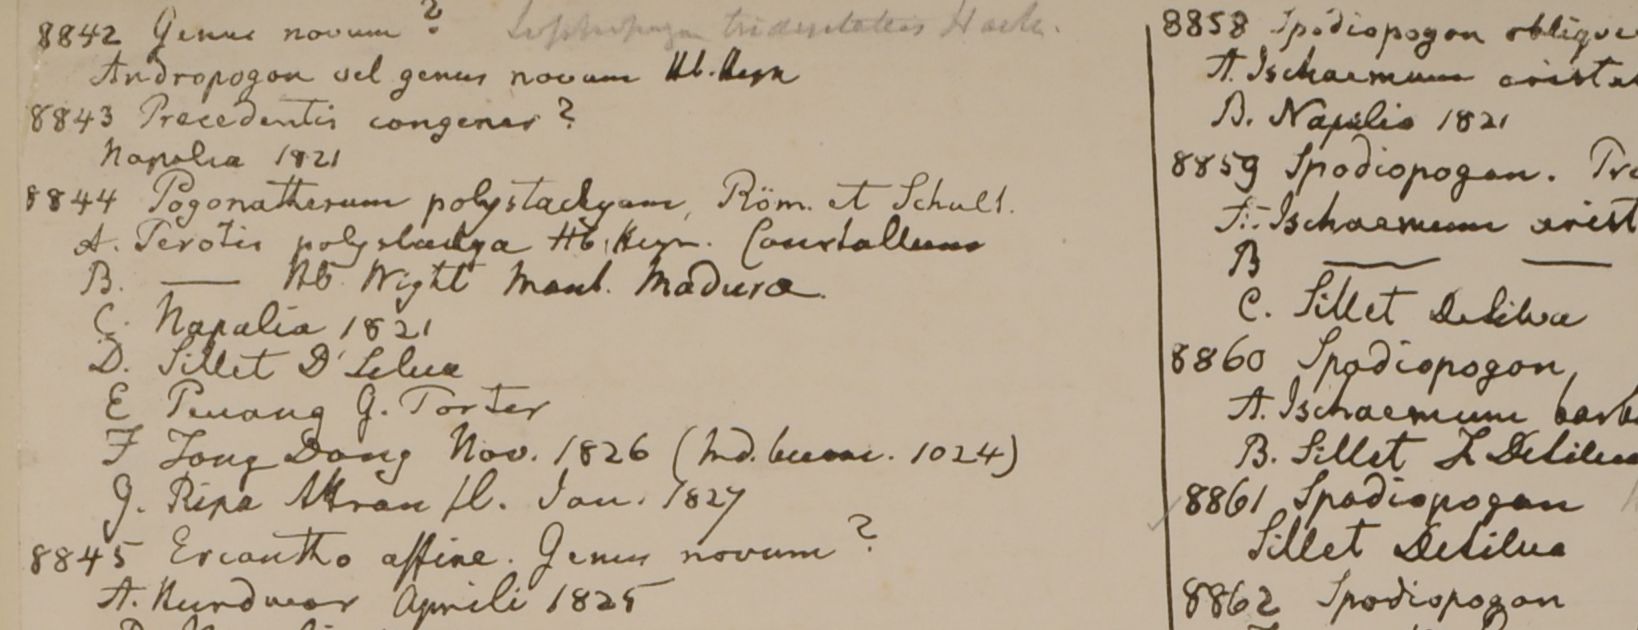 8842 Genus novum? Lophopogon tridentatus Hack.
Andropogon vel genus novum Hb. Heyn
8843 Precedentis congener?
Napalia 1821
8844 Pogonatherum polystachyum, Röm. et Schult.
A. Perotis polystachya Hb. Heyn. Courtallum
B. —— Hb. Wight Mont. Madura.
C. Napalia 1821
D. Sillet D'Selua
E Penang G. Porter
F Tong Dong Nov. 1826 (Md. burm. 1024)
G. Ripa Attran fl. Jan. 1827
8845 Ereantho affine. Genus novum?
A. Hurdwar Aprili 1825
8858 Spodiopogon obliqui
A. Ischaemum arista
B. Napalia 1821
8859 Spodiopogon. Tr
A. Ischaemum arist
B —— ——
C. Sillet DeSilva
8860 Spodiopogon,
A. Ischaemum barb
B. Sillet F DeSilva
8861 Spodiopogon
Sillet DeSilva
8862 Spodiopogon